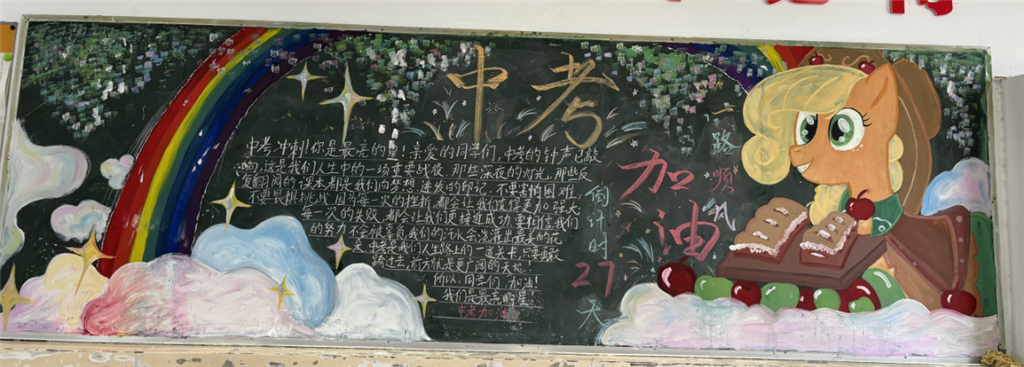 中考
加油
一路顺风
倒计时
27
天
中考冲刺你是最亮的星!亲爱的同学们,中考的钟声已敲
响,这是我们人生中的一场重要战役,那些深夜的灯光,那些反
复翻阅的课本都是我们向梦想进发的印记,不要害怕困难
不要畏惧挑战,因为每一次的挫折,都会让我们变得更加强大
每一次的失败,都会让我们更接近成功,要相信我们
的努力不会被辜负我们的汗水会浇灌出最美的花
中考是我们人生路上的一道关卡,只要
跨过去,前方就是更广阔的天地!
所以,同学们,加油!
我们是最亮的星
中考加油